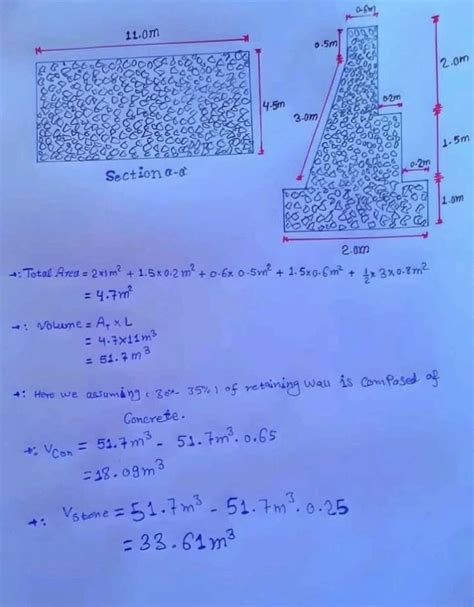 11.0m
4.5m
Section a-a
0.6m
0.5m
2.0m
0.2m
3.0m
1.5m
0.2m
1.0m
2.0m
→: Total Area = 2*1m² + 1.5x0.2m² + 0.6x 0.5m² + 1.5x0.6m² + 1/2 x 3x0.8m²
= 4.7m²
→: Volume = A_T x L
= 4.7x11m³
= 51.7m³
→: Here we assuming (30%- 35%) of retaining wall is composed of
Concrete.
→: V_Con = 51.7m³ - 51.7m³.0.65
= 18.09m³
→: V_Stone = 51.7m³ - 51.7m³.0.25
= 33.61m³